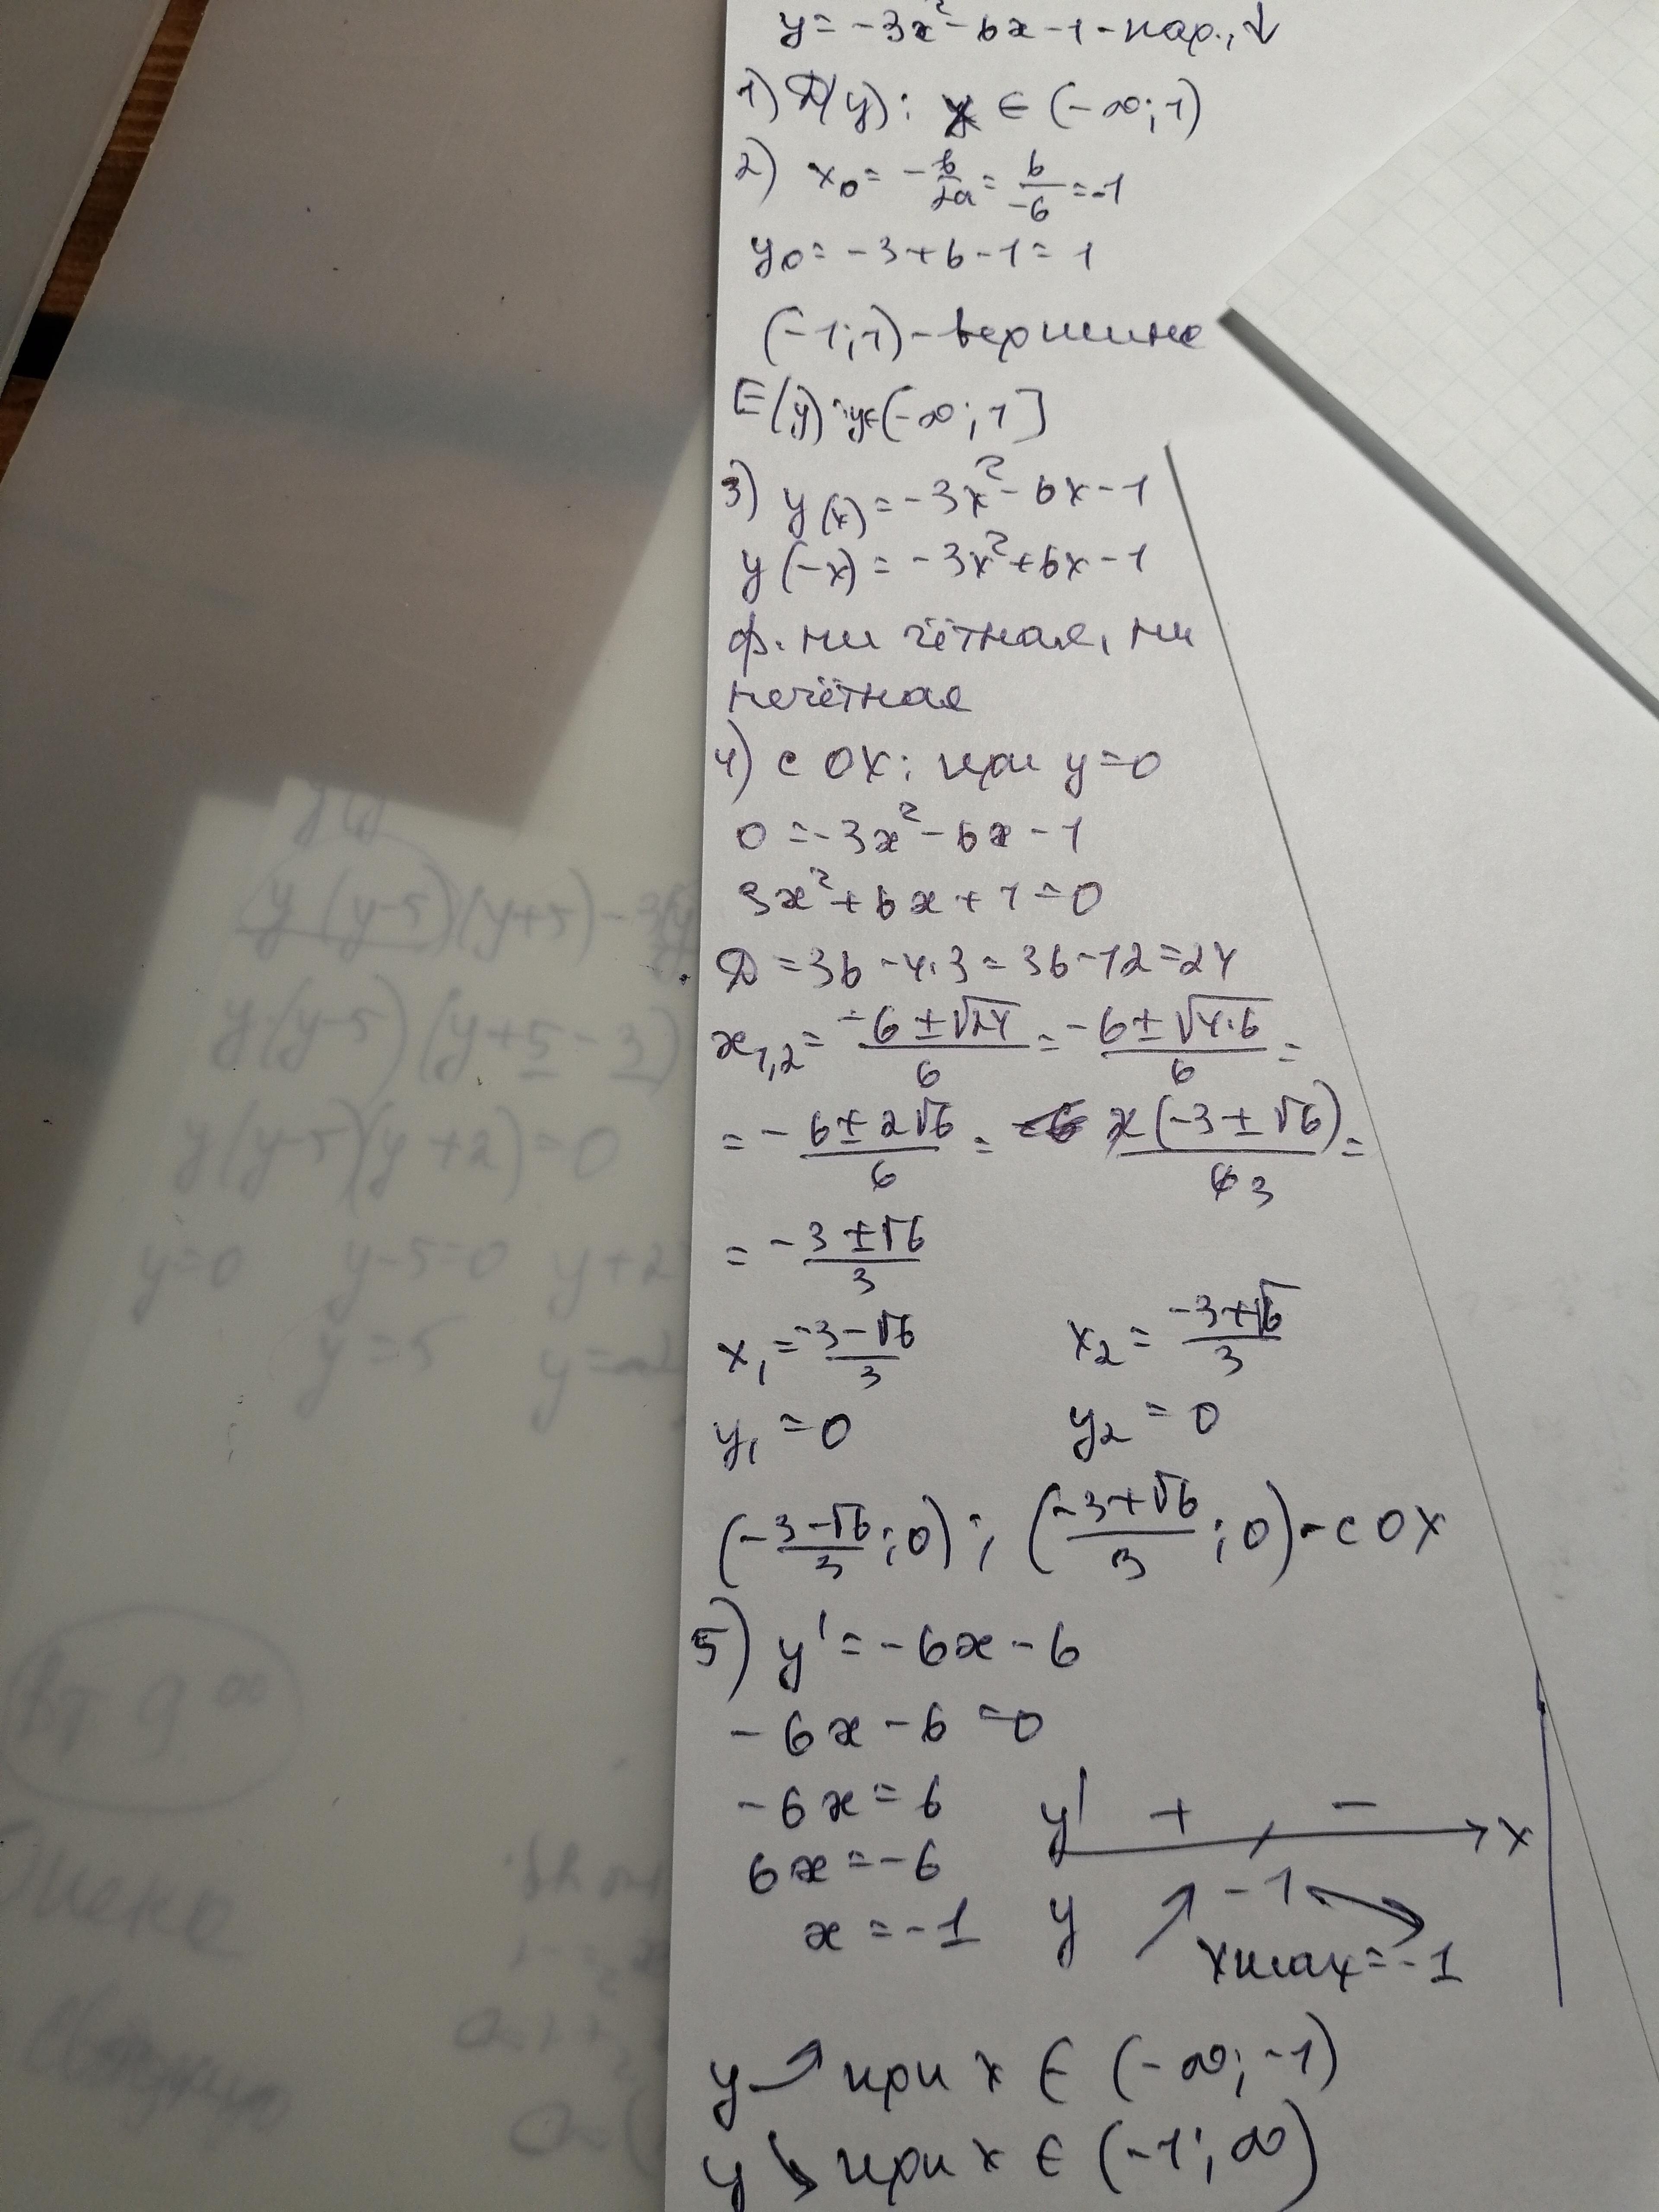 y = -3x² - 6x - 1 - пар., ↓
1) D(y): x ∈ (-∞; 1)
2) x₀ = -b/2a = 6/-6 = -1
y₀ = -3+6-1 = 1
(-1; 1) - вершина
E(y): y∈(-∞; 1]
3) y(x) = -3x² - 6x - 1
y(-x) = -3x² + 6x - 1
ф. ни чётная, ни
нечётная
4) с OX: при y=0
0 = -3x² - 6x - 1
3x² + 6x + 1 = 0
D = 36 - 4·3 = 36 - 12 = 24
x₁,₂ = (-6 ± √24)/6 = (-6 ± √4·6)/6 =
= (-6 ± 2√6)/6 = 2(-3 ± √6)/6 3 =
= (-3 ± √6)/3
x₁ = (-3-√6)/3 x₂ = (-3+√6)/3
y₁ = 0 y₂ = 0
((-3-√6)/3; 0); ((-3+√6)/3; 0) - с OX
5) y' = -6x - 6
-6x - 6 = 0
-6x = 6
6x = -6
x = -1
y' + - x
-1
y ↗ ↘
xmax = -1
y ↗ при x ∈ (-∞; -1)
y ↘ при x ∈ (-1; ∞)
y(y-5)(y+5)-3
y(y-5)(y+5-3)
y(y-5)(y+2)=0
y=0 y-5=0 y+2
y=5